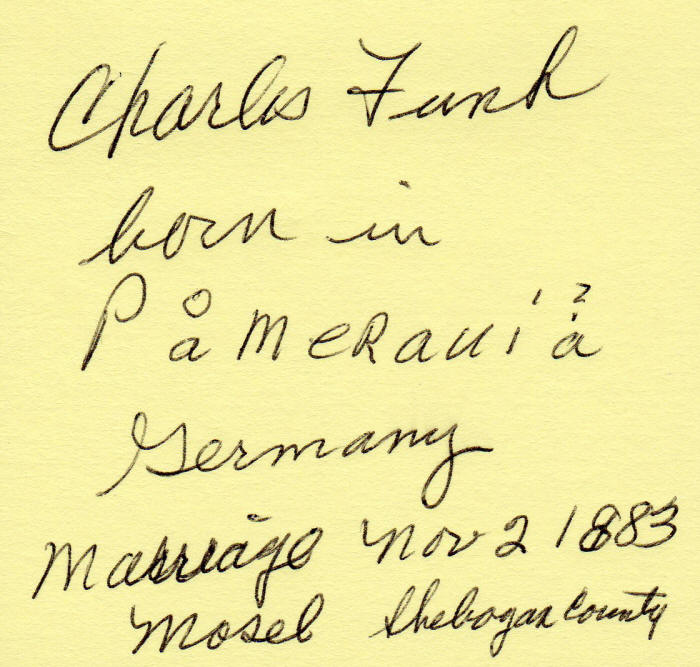 Charles Funk
born in
Påmeravia
Germany
Marriage Nov 2 1883
Mosel Shebogan County